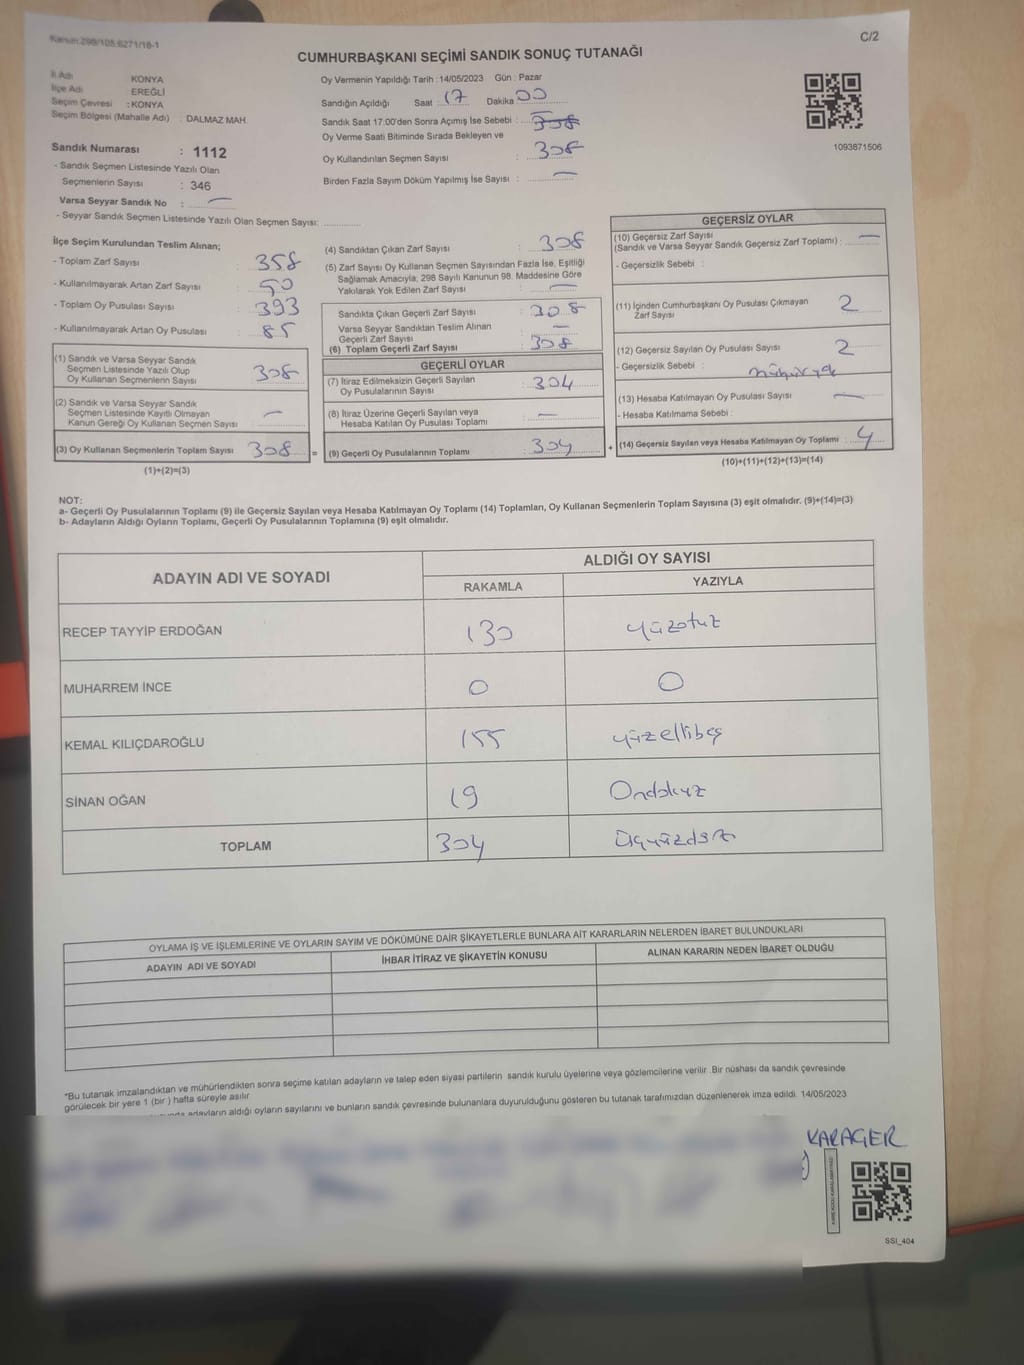 Kanun:298/105:6271/18-1
C/2
CUMHURBAŞKANI SEÇİMİ SANDIK SONUÇ TUTANAĞI
İl Adı KONYA
İlçe Adı EREĞLİ
Seçim Çevresi :KONYA
Seçim Bölgesi (Mahalle Adı) : DALMAZ MAH.
Sandık Numarası : 1112
- Sandık Seçmen Listesinde Yazılı Olan
Seçmenlerin Sayısı : 346
Varsa Seyyar Sandık No : —
- Seyyar Sandık Seçmen Listesinde Yazılı Olan Seçmen Sayısı:
Oy Vermenin Yapıldığı Tarih :14/05/2023 Gün : Pazar
Sandığın Açıldığı Saat : 17 Dakika 00
Sandık Saat 17:00'den Sonra Açımış İse Sebebi : 308
Oy Verme Saati Bitiminde Sırada Bekleyen ve
Oy Kullandırılan Seçmen Sayısı : 308
Birden Fazla Sayım Döküm Yapılmış İse Sayısı : —
1093871506
İlçe Seçim Kurulundan Teslim Alınan;
- Toplam Zarf Sayısı : 358
- Kullanılmayarak Artan Zarf Sayısı : 50
- Toplam Oy Pusulası Sayısı : 393
- Kullanılmayarak Artan Oy Pusulası : 85
(1) Sandık ve Varsa Seyyar Sandık
Seçmen Listesinde Yazılı Olup
Oy Kullanan Seçmenlerin Sayısı : 308
(2) Sandık ve Varsa Seyyar Sandık
Seçmen Listesinde Kayıtlı Olmayan
Kanun Gereği Oy Kullanan Seçmen Sayısı : —
(3) Oy Kullanan Seçmenlerin Toplam Sayısı 308 =
(1)+(2)=(3)
(4) Sandıktan Çıkan Zarf Sayısı : 308
(5) Zarf Sayısı Oy Kullanan Seçmen Sayısından Fazla İse, Eşitliği
Sağlamak Amacıyla; 298 Sayılı Kanunun 98. Maddesine Göre
Yakılarak Yok Edilen Zarf Sayısı : —
Sandıkta Çıkan Geçerli Zarf Sayısı : 308
Varsa Seyyar Sandıktan Teslim Alınan
Geçerli Zarf Sayısı : —
(6) Toplam Geçerli Zarf Sayısı : 308
GEÇERLİ OYLAR
(7) İtiraz Edilmeksizin Geçerli Sayılan
Oy Pusulalarının Sayısı : 304
(8) İtiraz Üzerine Geçerli Sayılan veya
Hesaba Katılan Oy Pusulası Toplamı : —
(9) Geçerli Oy Pusulalarının Toplamı : 304 +
GEÇERSİZ OYLAR
(10) Geçersiz Zarf Sayısı
(Sandık ve Varsa Seyyar Sandık Geçersiz Zarf Toplamı) : —
- Geçersizlik Sebebi :
(11) İçinden Cumhurbaşkanı Oy Pusulası Çıkmayan
Zarf Sayısı 2
(12) Geçersiz Sayılan Oy Pusulası Sayısı 2
- Geçersizlik Sebebi :
(13) Hesaba Katılmayan Oy Pusulası Sayısı —
- Hesaba Katılmama Sebebi :
(14) Geçersiz Sayılan veya Hesaba Katılmayan Oy Toplamı : 4
(10)+(11)+(12)+(13)=(14)
NOT:
a- Geçerli Oy Pusulalarının Toplamı (9) ile Geçersiz Sayılan veya Hesaba Katılmayan Oy Toplamı (14) Toplamları, Oy Kullanan Seçmenlerin Toplam Sayısına (3) eşit olmalıdır. (9)+(14)=(3)
b- Adayların Aldığı Oyların Toplamı, Geçerli Oy Pusulalarının Toplamına (9) eşit olmalıdır.
ADAYIN ADI VE SOYADI ALDIĞI OY SAYISI
RAKAMLA YAZIYLA
RECEP TAYYİP ERDOĞAN 130 yüzotuz
MUHARREM İNCE 0 0
KEMAL KILIÇDAROĞLU 155 yüzellibeş
SİNAN OĞAN 19 Ondokuz
TOPLAM 304 üçyüzdört
OYLAMA İŞ VE İŞLEMLERİNE VE OYLARIN SAYIM VE DÖKÜMÜNE DAİR ŞİKAYETLERLE BUNLARA AİT KARARLARIN NELERDEN İBARET BULUNDUKLARI
ADAYIN ADI VE SOYADI İHBAR İTİRAZ VE ŞİKAYETİN KONUSU ALINAN KARARIN NEDEN İBARET OLDUĞU
*Bu tutanak imzalandıktan ve mühürlendikten sonra seçime katılan adayların ve talep eden siyasi partilerin sandık kurulu üyelerine veya gözlemcilerine verilir .Bir nüshası da sandık çevresinde
görülecek bir yere 1 (bir ) hafta süreyle asılır
adayların aldığı oyların sayılarını ve bunların sandık çevresinde bulunanlara duyurulduğunu gösteren bu tutanak tarafımızdan düzenlenerek imza edildi. 14/05/2023
KARAGER
SSI_404